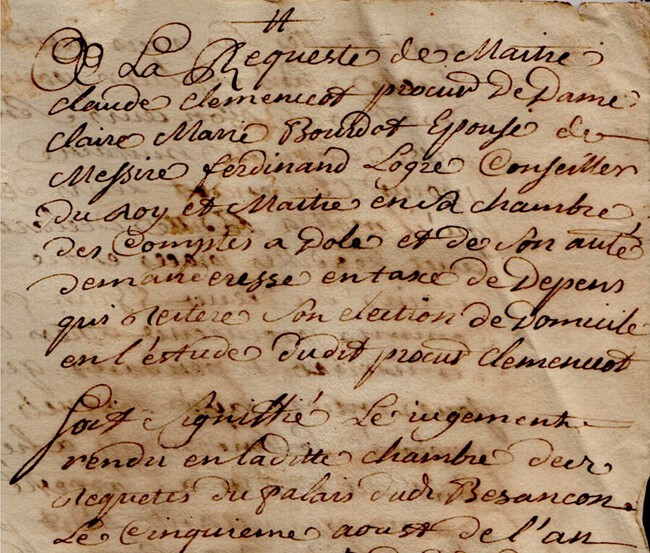 A La Requeste de Maitre
claude Clemencot procur De Dame
Claire Marie Bourdot Epouse de
Messire ferdinand Logre Conseiller
Du Roy et Maitre en Sa chambre
des Comptes a Dole et de Son auté
demanderesse en taxe de Depens
qui Reitere Son election de Domicile
en l'estude dudit procur Clemencot
soit Signiffié Le iugement
rendu en laditte chambre des
Requetes du palais dudt Besancon
Le Cinquieme aoust de l'an